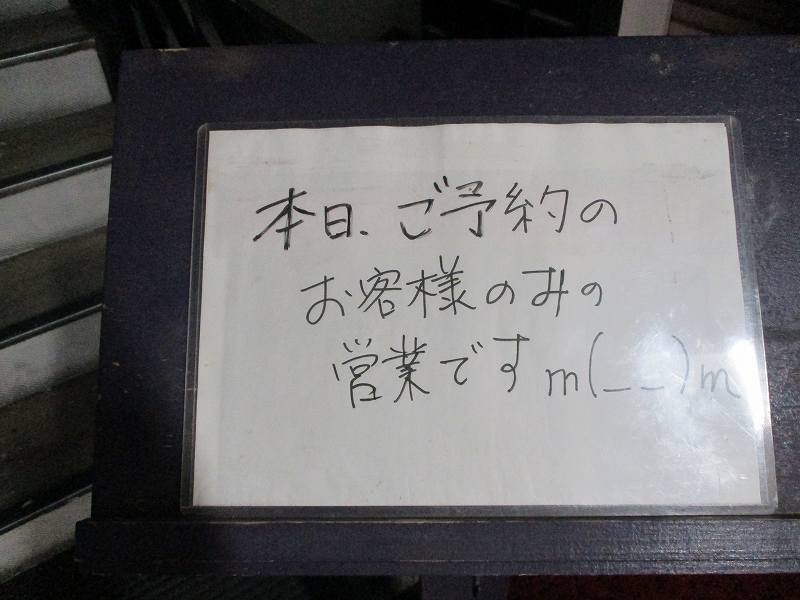 本日、ご予約の
お客様のみの
営業ですm(__)m